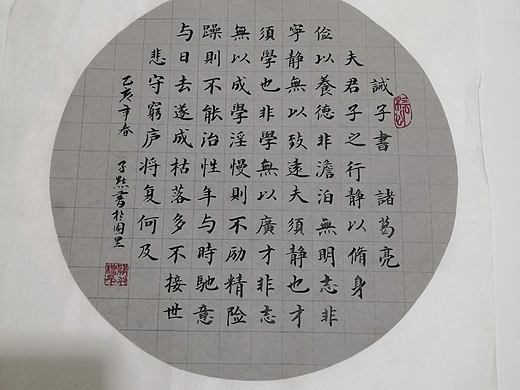 誡子書 諸葛亮
夫君子之行静以脩身
俭以養德非澹泊無明志非
寧静無以致遠夫須静也才
須學也非學無以廣才非志
無以成學淫慢則不励精险
躁則不能治性年与時馳意
与日去遂成枯落多不接世
悲守窮庐将复何及
乙亥年春 子默書於